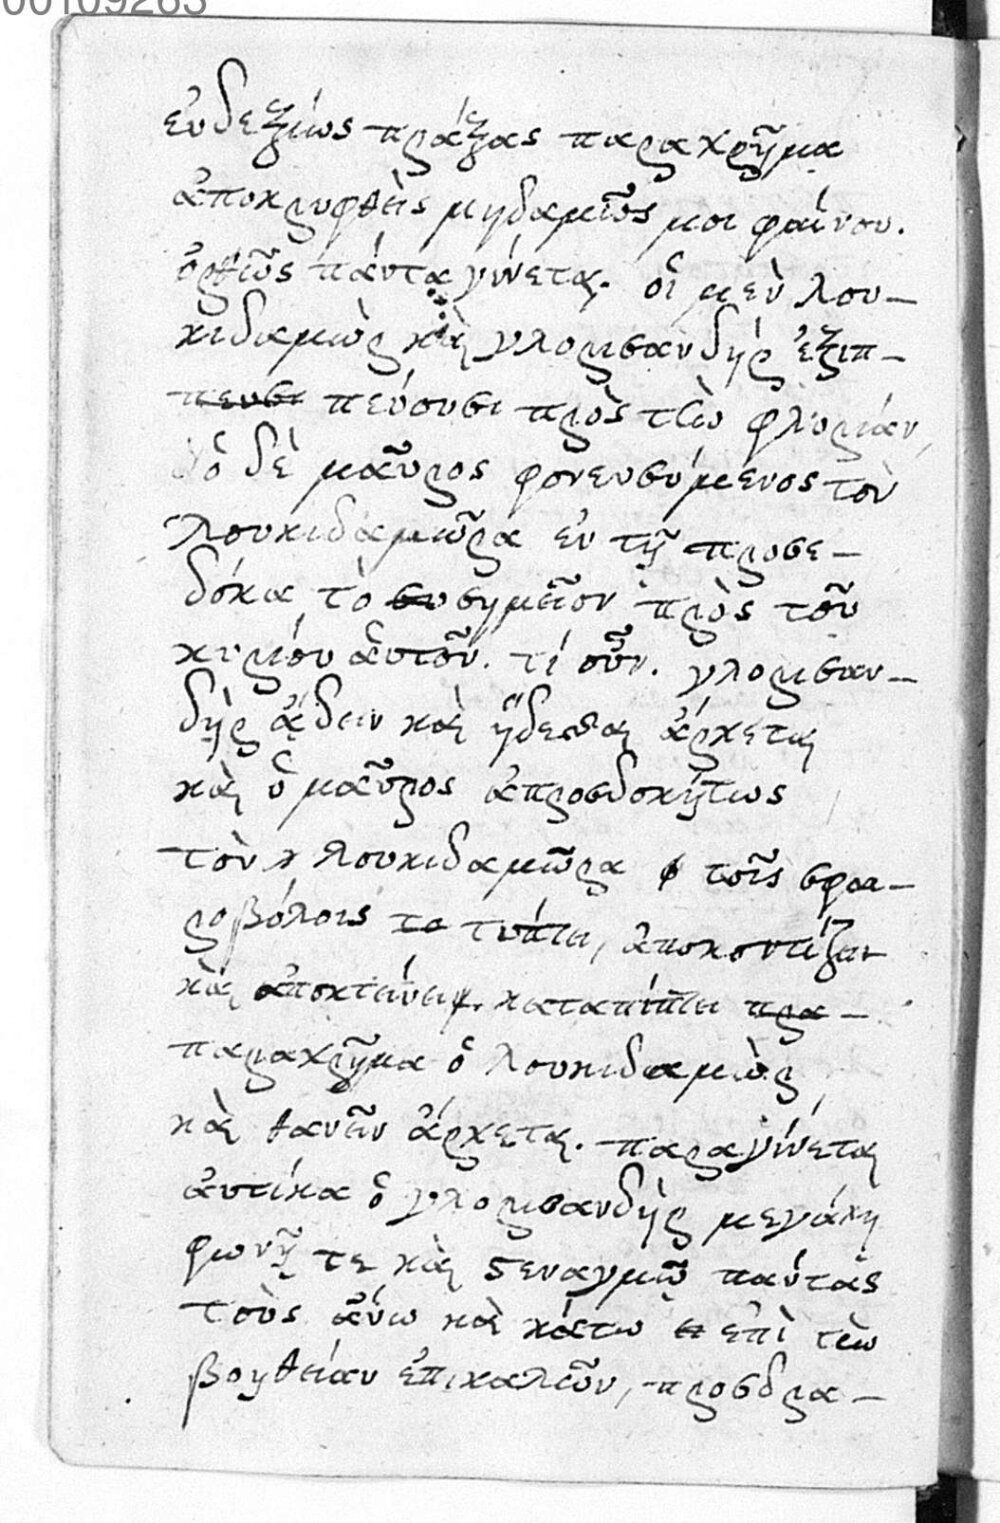 ἐνδεξίως πράξας παραχρῆμα
ἀποκρυφθεὶς μηδαμῶς μοι φαίνου.
ὀρθῶς πάντα γίνεται. οἱ μὲν λου-
κιδαμὼρ καὶ γλορισανδὴρ ἐξιπ-
πευσι πεύσουσι πρὸς τὴν φλωρίαν,
ὁ δὲ μαῦρος φονευσόμενος τὸν
λουκιδαμῶρα ἐν τῇ προσε-
δόκα τὸ συ σημεῖον πρὸς τοῦ
κυρίου αὐτοῦ. τί οὖν. γλορισαν-
δὴρ ᾄδειν καὶ ἥδεσθαι ἄρχεται
καὶ ὁ μαῦρος ἀπροσδοκήτως
τὸν λουκιδαμῶρα τοῖς σφαι-
ροβόλοις το τύπτει, ἀποκοντίζει
καὶ ἀποκτείνει. καταπίπτει πρα-
παραχρῆμα ὁ λουκιδαμὼρ,
καὶ θανεῖν ἄρχεται. παραγίνεται
αὐτίκα ὁ γλορισανδὴρ μεγάλῃ
φωνῇ τε καὶ στεναγμῷ πάντας
τοὺς ἄνω καὶ κάτω ἐπὶ τὴν
βοήθειαν ἐπικαλῶν, προσδρα-